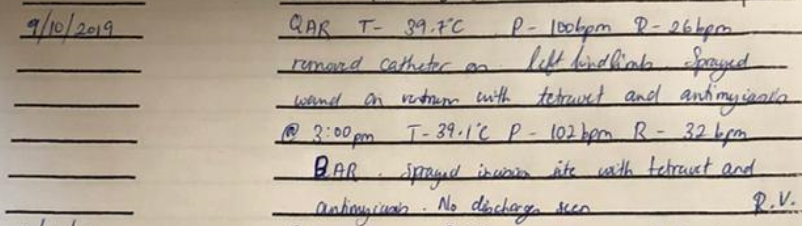 9/10/2019 QAR T- 39.7°C P- 100bpm R- 26bpm
removed catheter on left hindlimb. Sprayed
wound on ventrum with tetravet and antimyiasis
@ 3:00pm T- 39.1°C P- 102bpm R- 32bpm
BAR. sprayed incision site with tetravet and
antimyiasis. No discharge seen R.V.